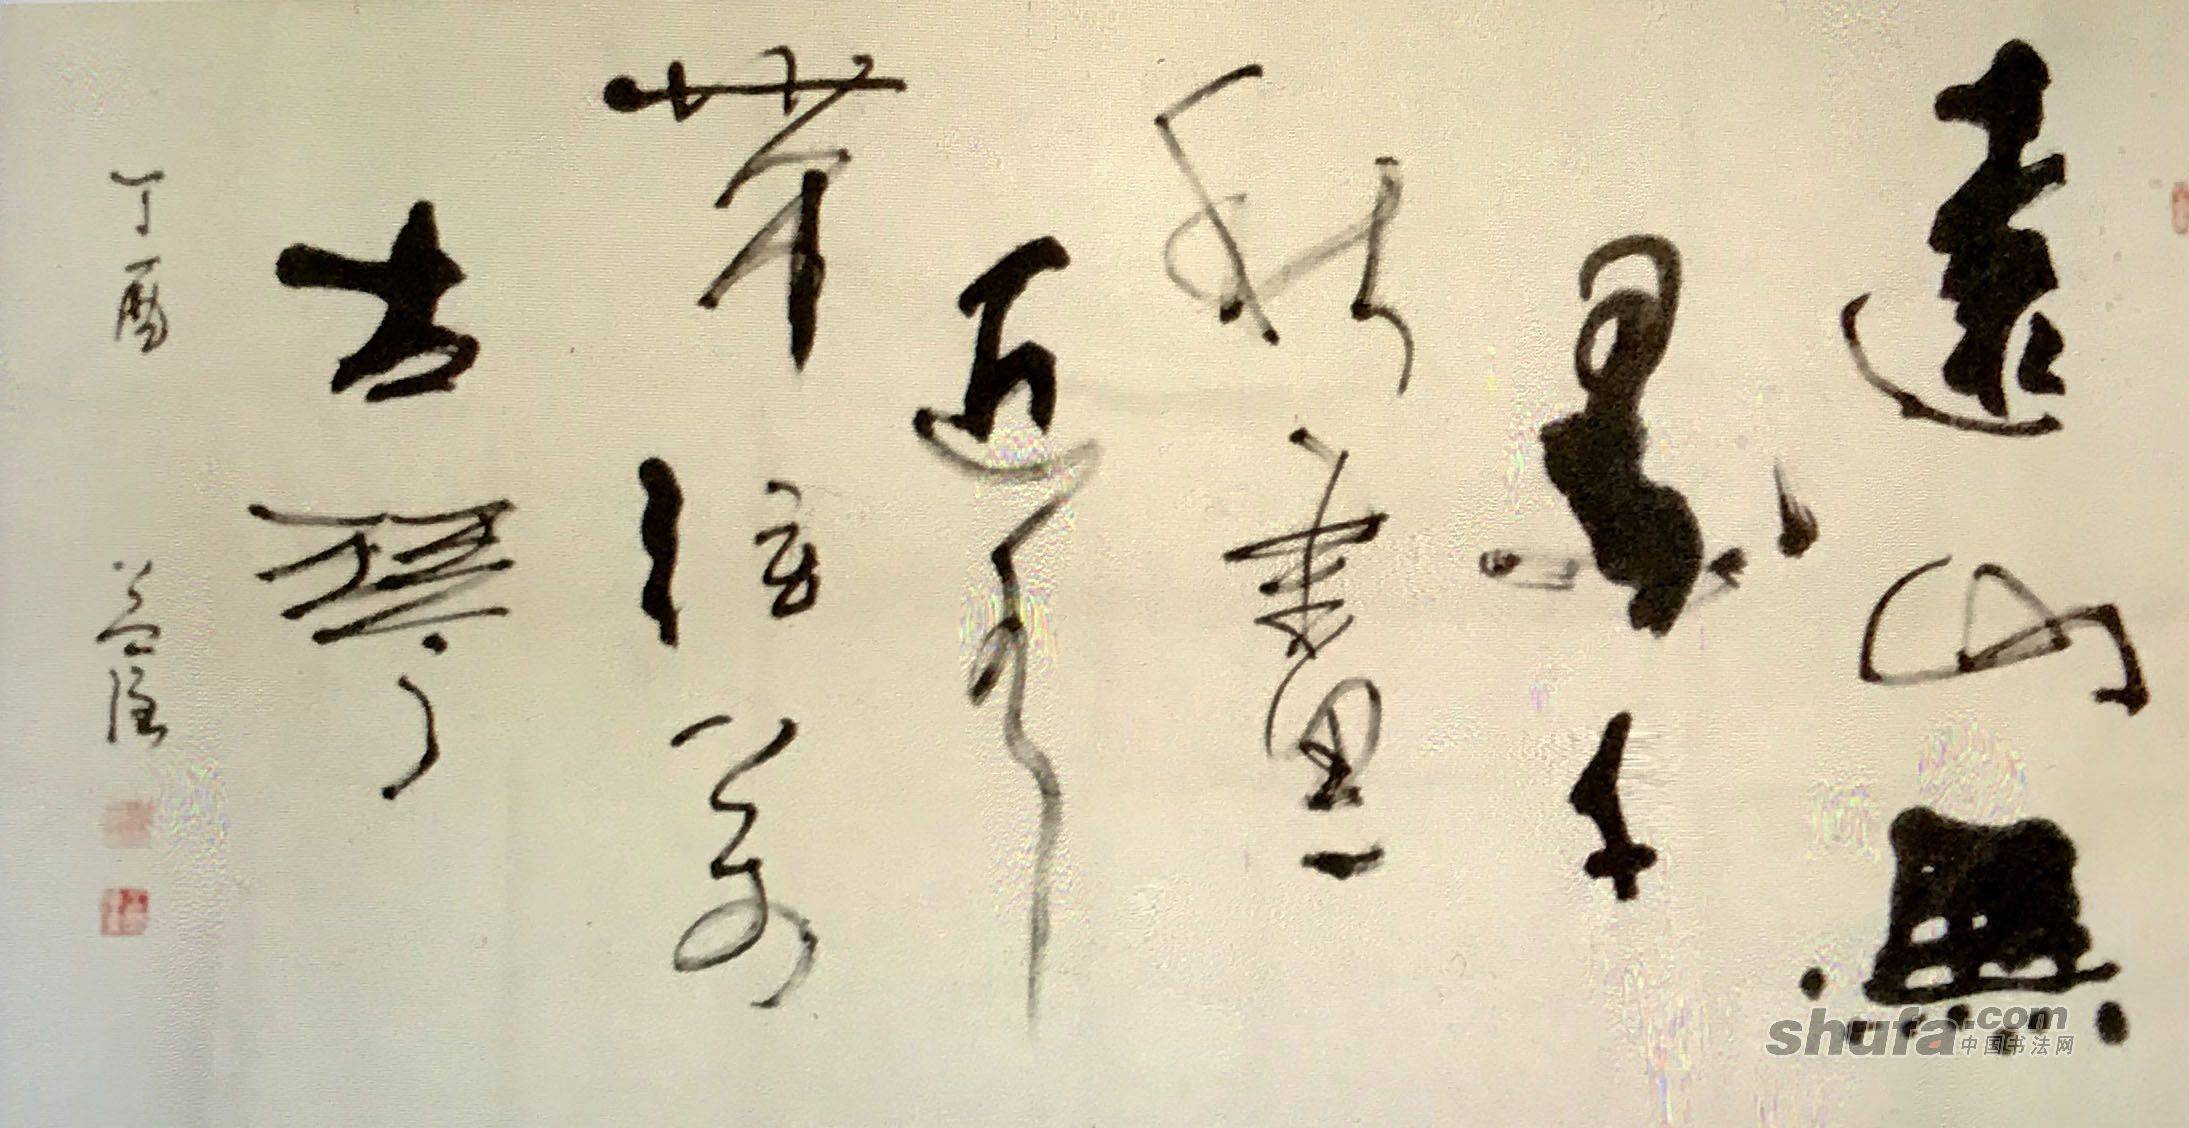 遠山無
墨千
秋畫
近水
無弦萬
古琴
丁酉
shufa.com
中国书法网